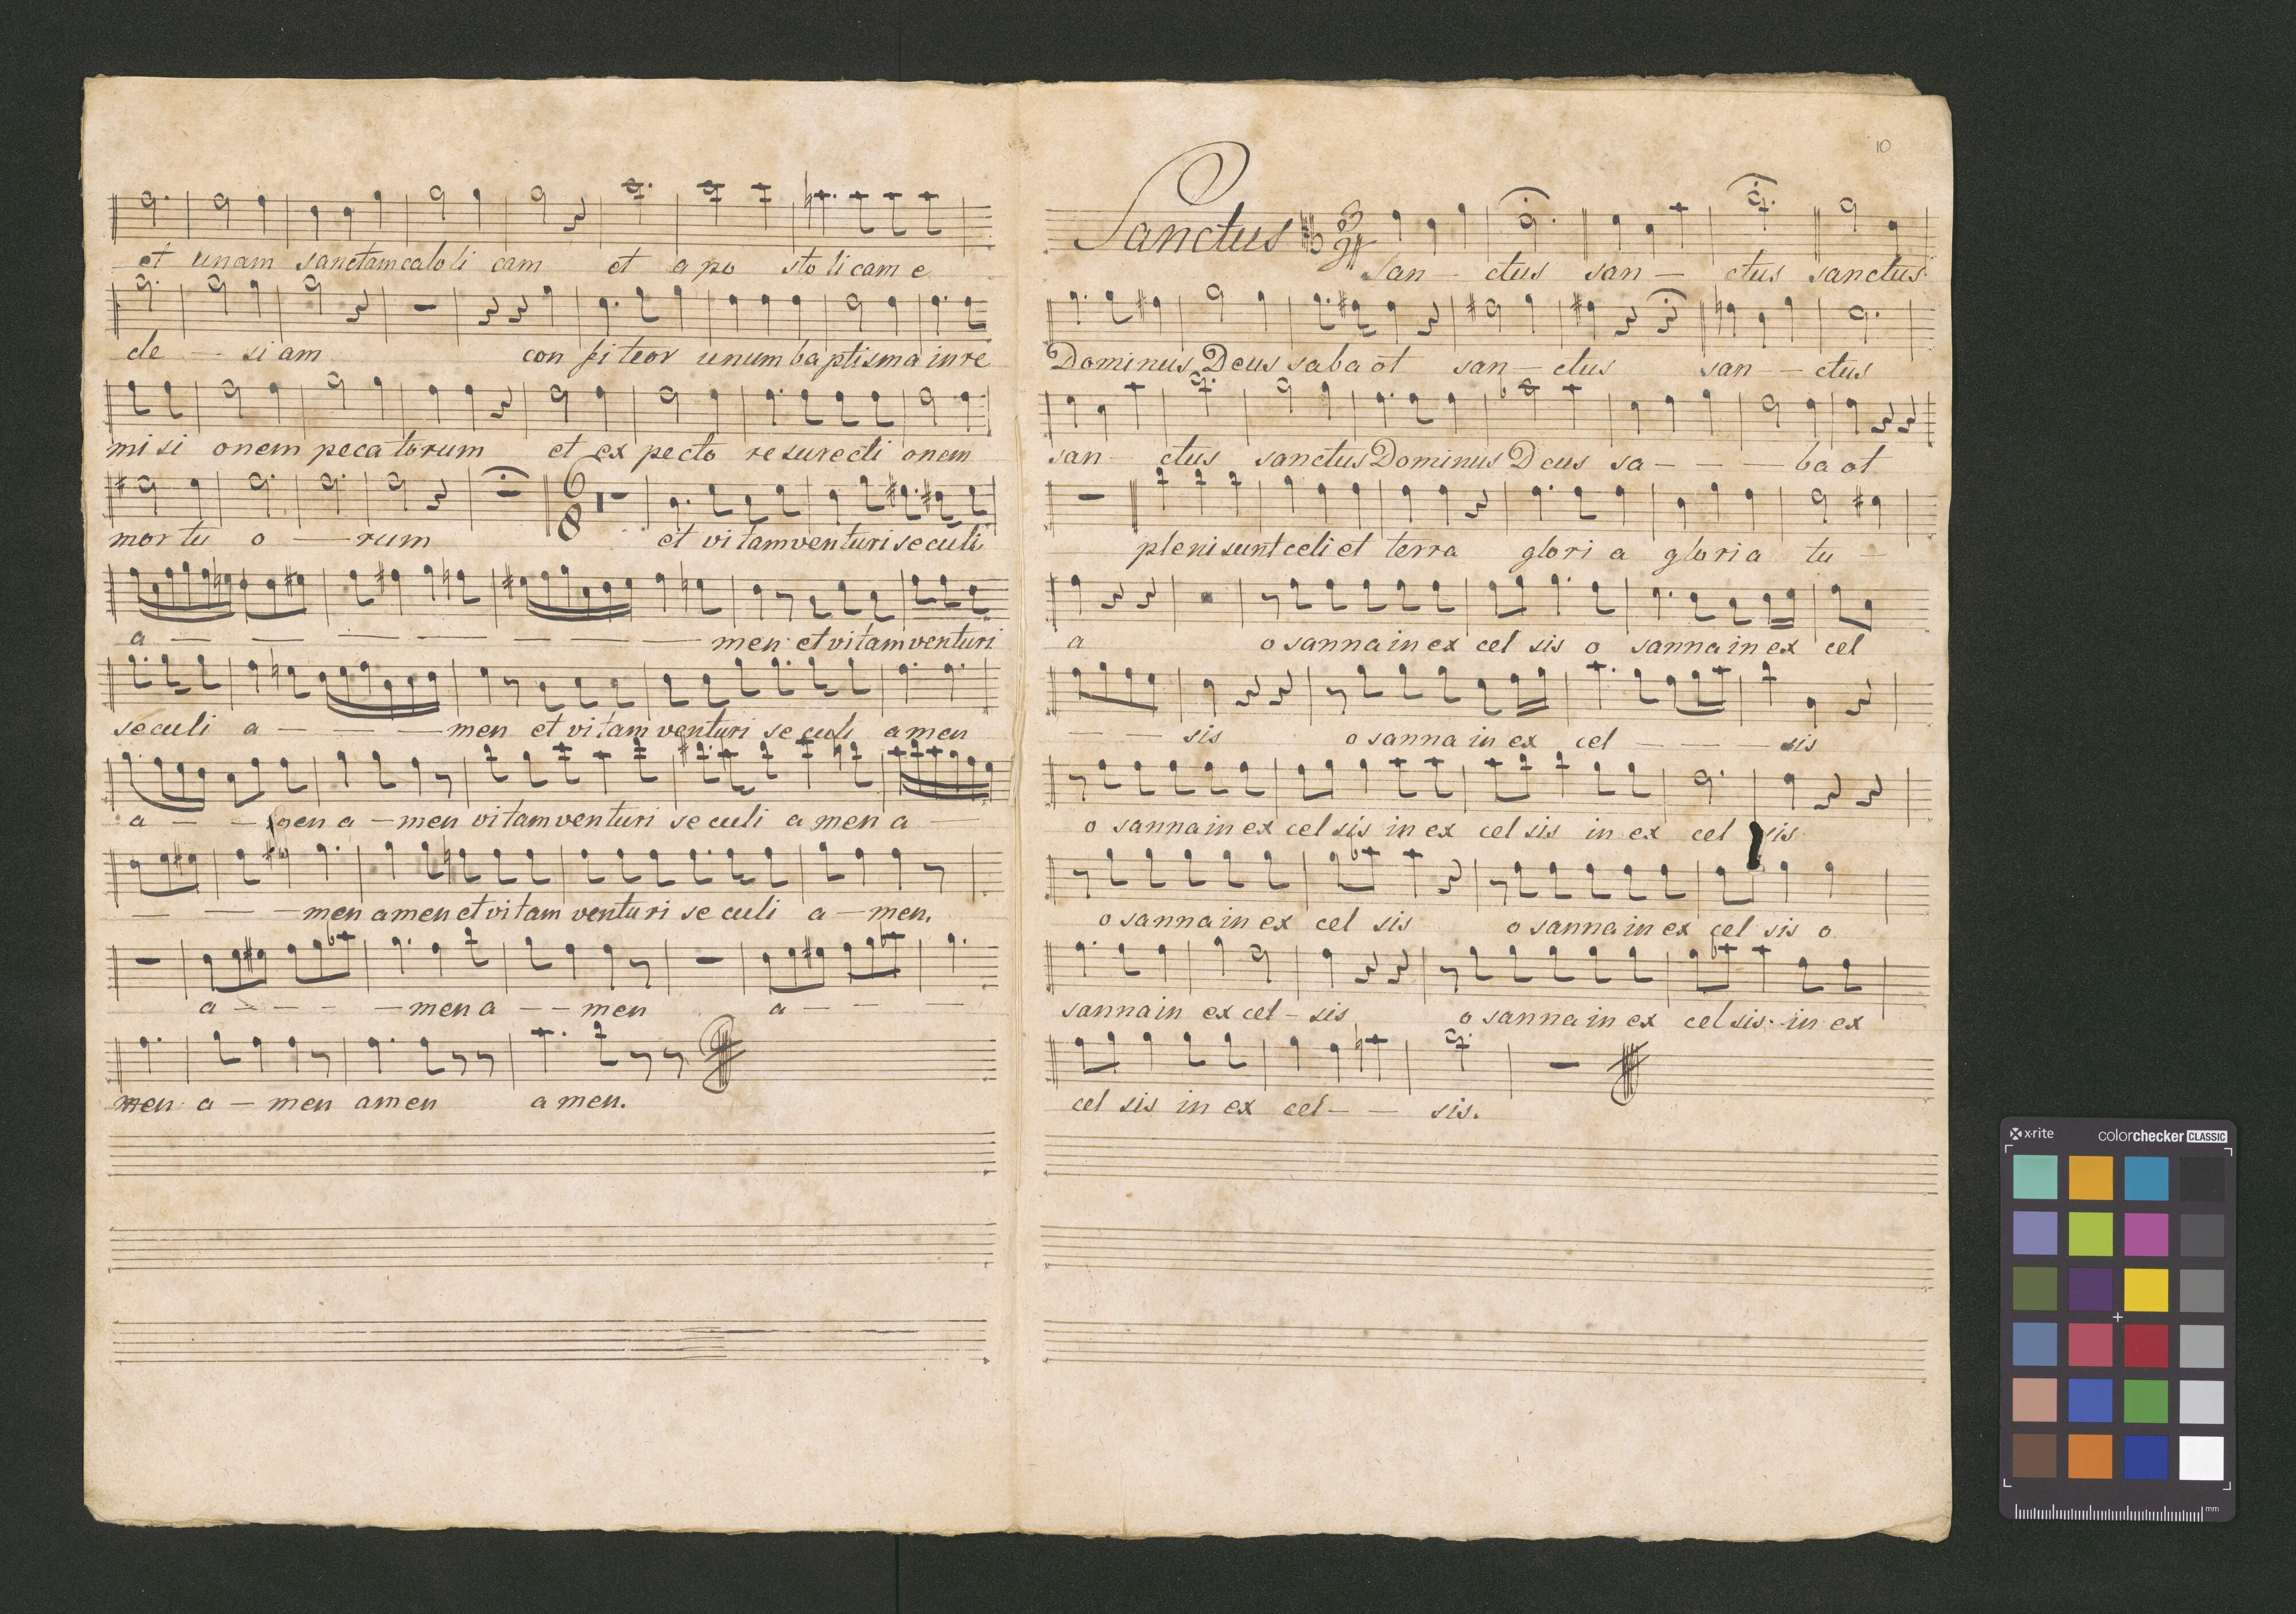 et unam sanctam catoli cam et a po sto li cam e
cle — si am con fi teor unum baptisma in re
mi si onem peca torum et ex pecto re surecti onem
mor tu o — rum 6 8 et vi tam venturi seculi
a — — — — — — — men et vitam venturi
seculi a — — — — men et vi tam venturi se culi amen
a — — men a — men vi tam venturi se culi a men a —
— — — men amen et vi tam venturi se culi a — men.
a — — — — men a — — men a — — —
men a — men amen a men.
10
Sanctus 3 San — ctus san — ctus sanctus
Dominus Deus saba ot san — ctus san — — ctus
san ctus sanctus Dominus Deus sa — — — ba ot
pleni sunt celi et terra glori a gloria tu —
a o sanna in ex cel sis o sanna in ex cel
— — sis o sanna in ex cel — — — sis
o sanna in ex cel sis in ex cel sis in ex cel sis
o sanna in ex cel sis o sanna in ex cel sis o
sanna in ex cel — sis o sanna in ex cel sis in ex
cel sis in ex cel — — sis.
x-rite colorchecker CLASSIC
mm